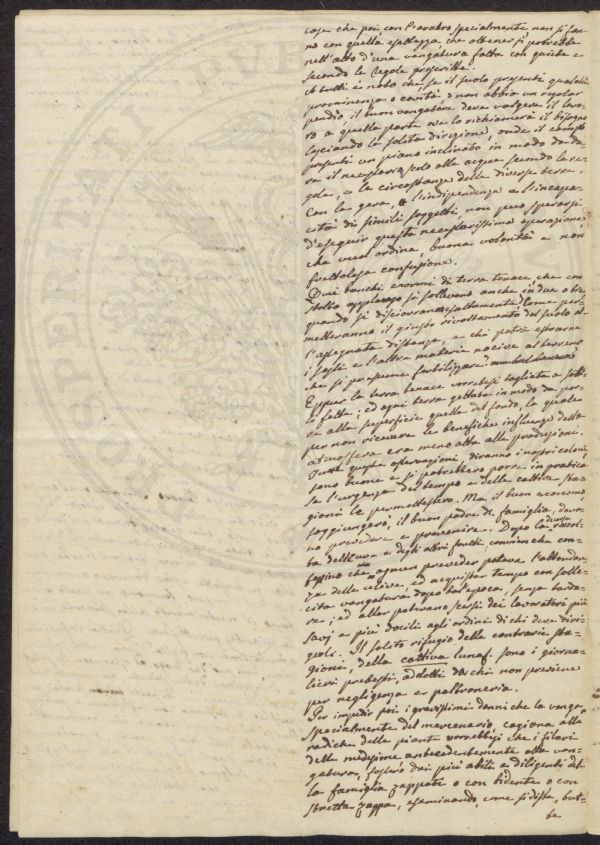 cose che poi con l'aratro specialmente non si fan-
no con quella esattezza che ottener si potrebbe
nell'atto d'una vangatura fatta con quiete e
secondo le regole prescritte.
A tutti è noto che se il suolo presenti qualche
prominenza o cavità o non abbia un regolar
pendio, il buon vangatore deve volgere il lavo-
ro a quella parte ove lo richiamerà il bisogno
lasciando la solita direzione, onde il campo
presenti un piano inclinato in modo da da-
re il necessario scolo alle acque secondo le re-
gole, e le circostanze delle diverse terre.
Con la gara, l'indipendenza e l'incapa-
cità di simili soggetti, non può sperarsi
d'eseguir questa necessarissima operazione
che vuol ordine, buona volontà e non
frettolosa confusione.
Quei pezzi enormi di terra tenace, che con
si sollevano anche in due o tre
quando si discioran esattamente? Come per-
metteranno il giusto rivoltamento del suolo al-
l'assegnata distanza, e chi potrà estrarne
i sassi e l'altre materie nocive al terreno
che si presume fertilizzare
Eppur la terra tenace vorrebbesi tagliata a sotti-
li fette; ed ogni terra gettata in modo da por-
re alla superficie quella del fondo, la quale
per non ricevere le benefiche influenze della
atmosfera era meno atta alle produzioni.
Tutte queste osservazioni, diranno i
sono buone e si potrebbero porre in pratica
se l'urgenza del tempo e delle cattive sta-
gioni le permettessero. Ma il buon economo,
soggiungerò, il buon padre di famiglia, devo-
no prevedere e prevenire. Dopo la raccol-
ta dell'uva e degli altri frutti, convien che con-
fessino che ognun preveder poteva l'abbondan-
za delle ulive, ed acquistar tempo con solle-
cita vangatura dopo tal epoca, senza tarda-
re; ed allor potevano scersi dei lavoratori più
savj e più docili agli ordini di chi deve diri-
gerli. Il solito rifugio delle contrarie sta-
gioni, della cattiva luna &c. sono i giorna-
lieri pretesti, addotti da chi non previene
per negligenza e poltroneria.
Per impedir poi i gravissimi danni che la vanga
specialmente del mercenario, cagiona alle
radiche delle piante vorrebbesi che i filari
delle medesime antecedentemente alla van-
gatura, fossero dai più abili e diligenti del-
la famiglia zappati o con bidente o con
stretta zappa, esaminando, come si disse, tut-
te